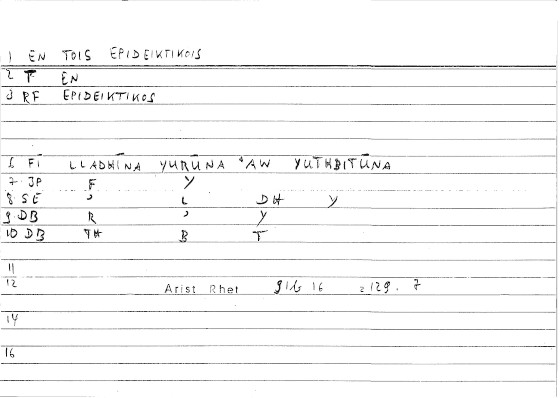 1 EN TOIS EPIDEIKTIKOIS
2 T EN
3 RF EPIDEIKTIKOS
6 FĪ LLADHĪNA YURŪNA 'AW YUTHBITŪNA
7 JP F Y
8 SE ' L DH Y
9 DB R ' Y
10 DB TH B T
11
12 Arist Rhet 16 = 129. 7
14
16